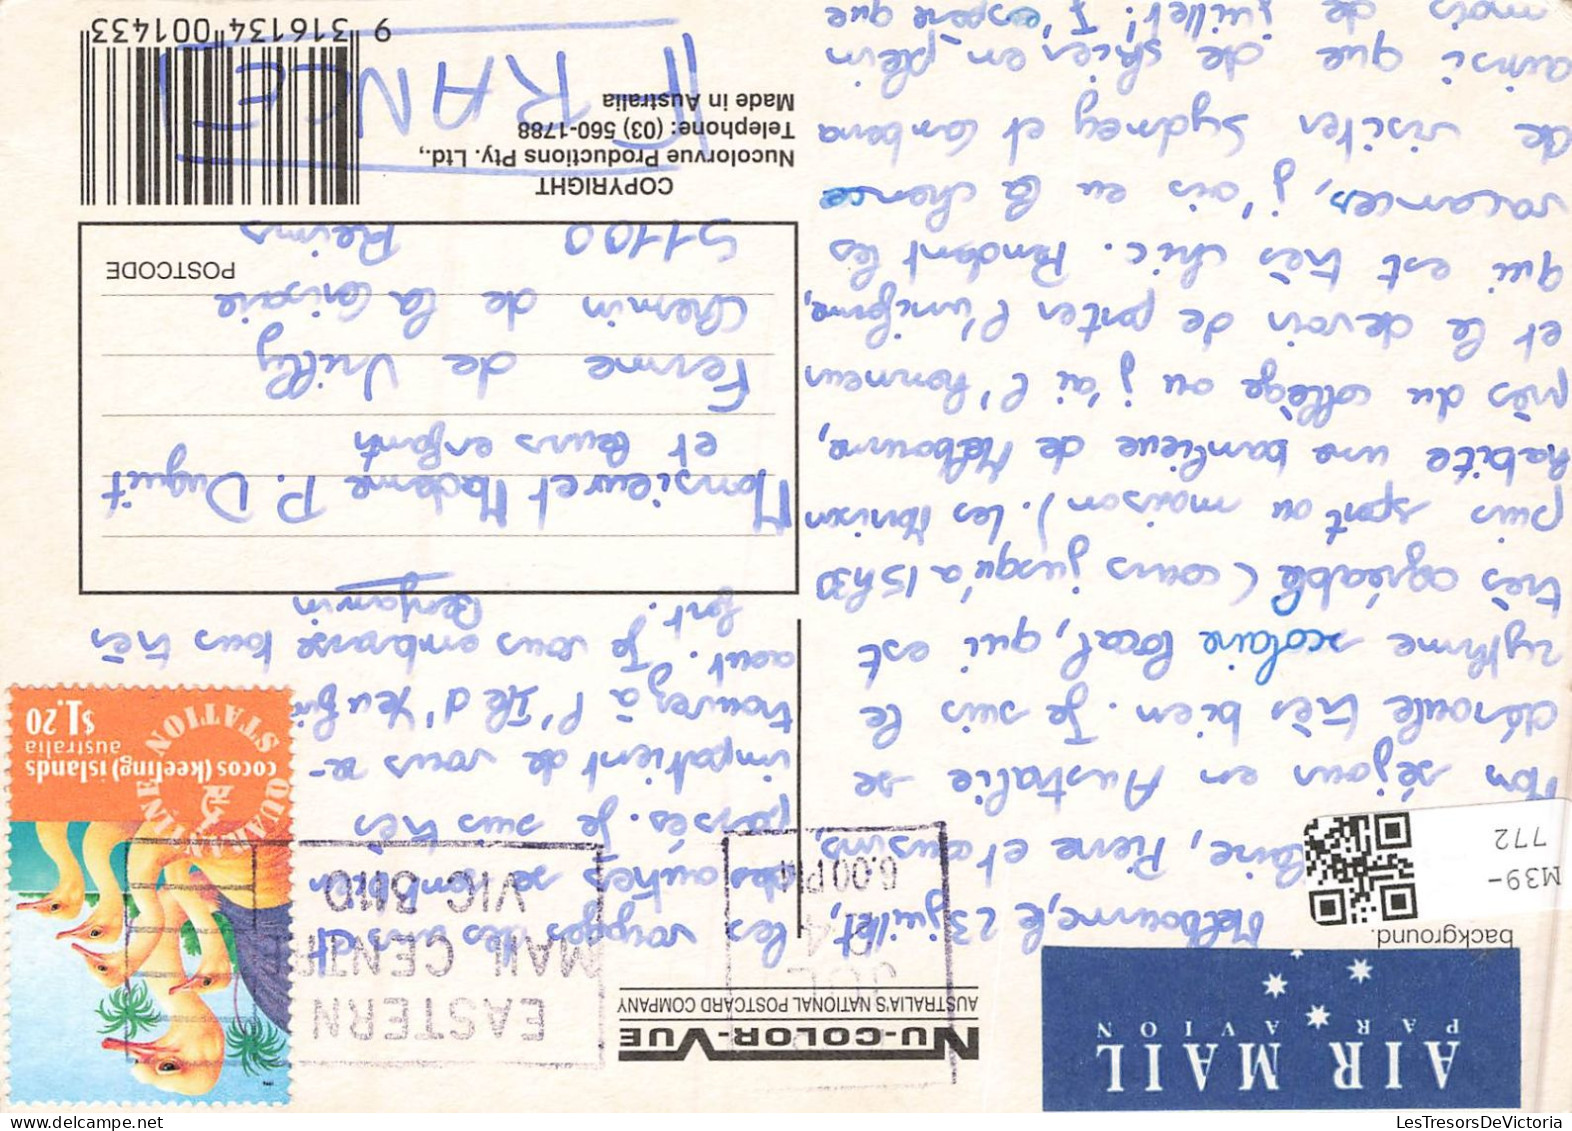 AIR MAIL
PAR AVION
background.
M39-
772
NU-COLOR-VUE
AUSTRALIA'S NATIONAL POSTCARD COMPANY
EASTERN
MAIL CENTRE
VIC 3110
JUL
24
6.00PM
cocos (keeling) islands
australia
$1.20
QUARANTINE STATION
Melbourne, le 23 juillet,
laire, Pierre et cousins,
Mon séjour en Australie se
déroule très bien. Je suis le
rythme scolaire local, qui est
très agréable (cours jusqu'à 15h30
puis sport ou maison). Les Morison
habite une banlieue de Melbourne,
près du collège ou j'ai l'honneur
et le devoir de porter l'uniforme,
qui est très chic. Pendant les
vacances, j'ais eu la chance
de visiter Sydney et Camberra
ainsi que de skier en plein
mois de juillet! J'espère que
les voyages des uns et
des autres se sont bien
passés. Je suis très
impatient de vous re-
trouver à l'Ile d'Yeu fin
aout. Je vous embrasse tous très
fort.
Benjamin
Monsieur et Madame P. Duguit
et leurs enfants
Ferme de Vrilly
Chemin de la Cerisaie
51100 Reims
POSTCODE
FRANCE
COPYRIGHT
Nucolorvue Productions Pty. Ltd.,
Telephone: (03) 560-1788
Made in Australia
9 316134 001433
LesTresorsDeVictoria